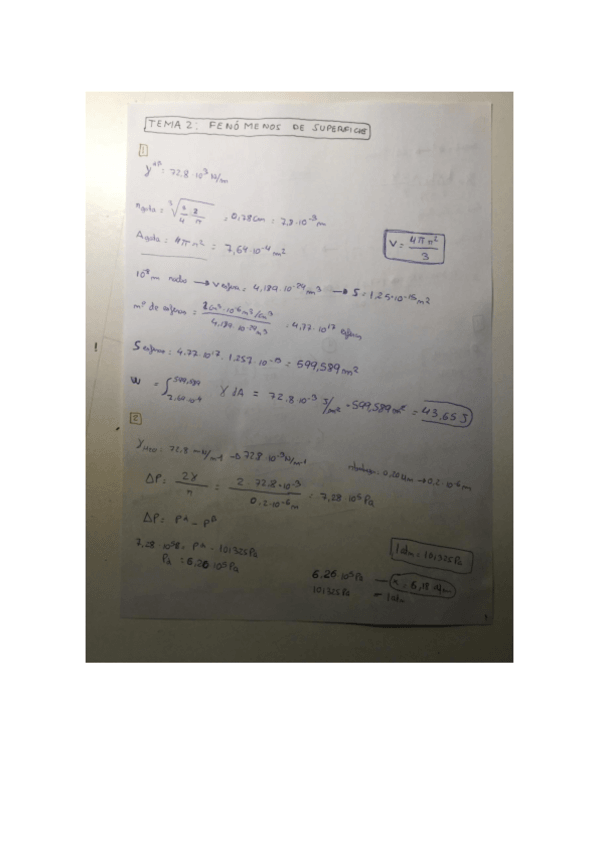 TEMA 2: FENÓMENOS DE SUPERFICIE
1
γ = 72,8·10⁻³ N/m
, 0,78cm = 7,8·10⁻³ m
A gota = 4πr² = 7,64·10⁻⁴ m²
V = 4πr² / 3
10⁻⁸ m radio → V esfera = 4,189·10⁻²⁴ m³ → S = 1,25·10⁻¹⁵ m²
nº de esferas = 2cm³·10⁻⁶ m³/cm³ / 4,189·10⁻²⁴ m³ = 4,77·10¹⁷ esferas
S esferas = 4,77·10¹⁷ · 1,257·10⁻¹⁵ = 599,589 m²
W = ∫ γ dA = 72,8·10⁻³ J/m² · 599,589 m² = 43,65 J
2
γ H₂O = 72,8 mN/m → 72,8·10⁻³ N/m
0,20 µm → 0,2·10⁻⁶ m
ΔP = 2γ / r = 2·72,8·10⁻³ / 0,2·10⁻⁶ m = 7,28·10⁵ Pa
ΔP = Pᴬ - Pᴮ
7,28·10⁵ = Pᴬ - 101325 Pa
1 atm = 101325 Pa
Pᴬ = 6,26·10⁵ Pa
6,26·10⁵ Pa — x = 6,18 atm
101325 Pa — 1 atm